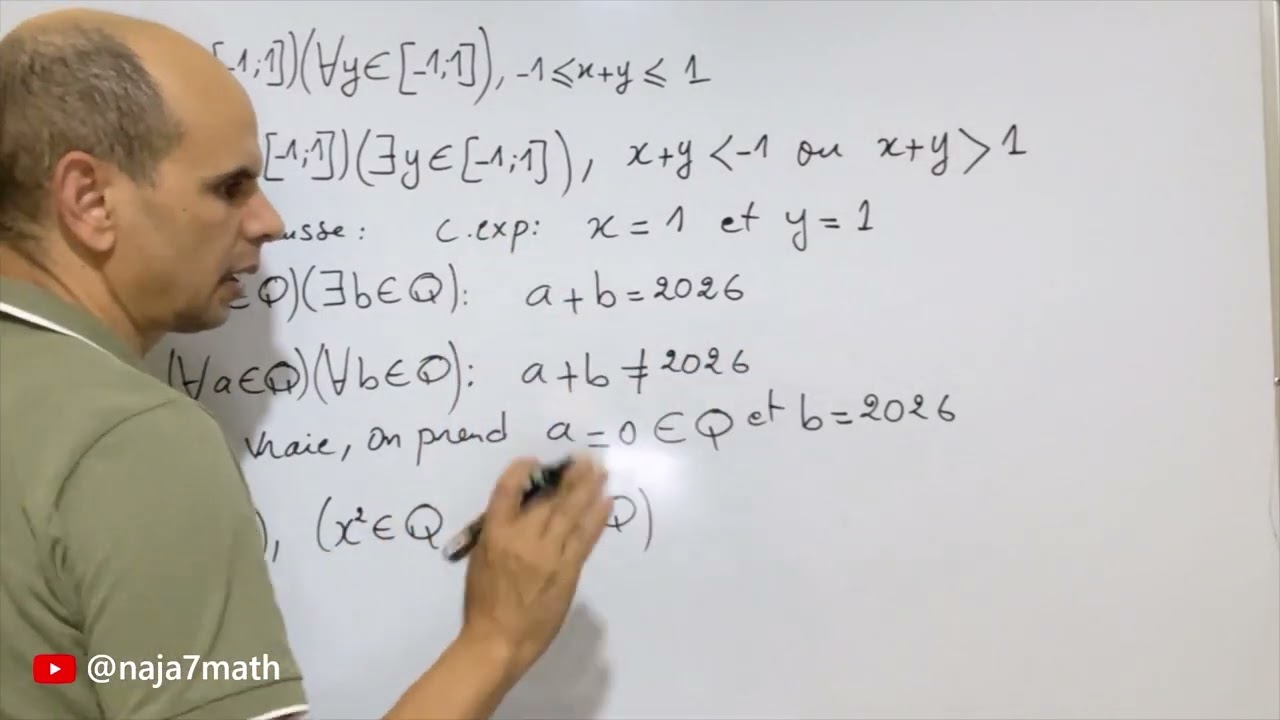 [-1;1])(∀y∈[-1;1]), -1⩽x+y⩽1
[-1;1])(∃y∈[-1;1]), x+y<-1 ou x+y>1
usse: C.exp: x=1 et y=1
∈Q)(∃b∈Q): a+b=2026
(∀a∈Q)(∀b∈Q): a+b≠2026
vraie, on prend a=0∈Q et b=2026
), (x²∈Q Q)
@naja7math